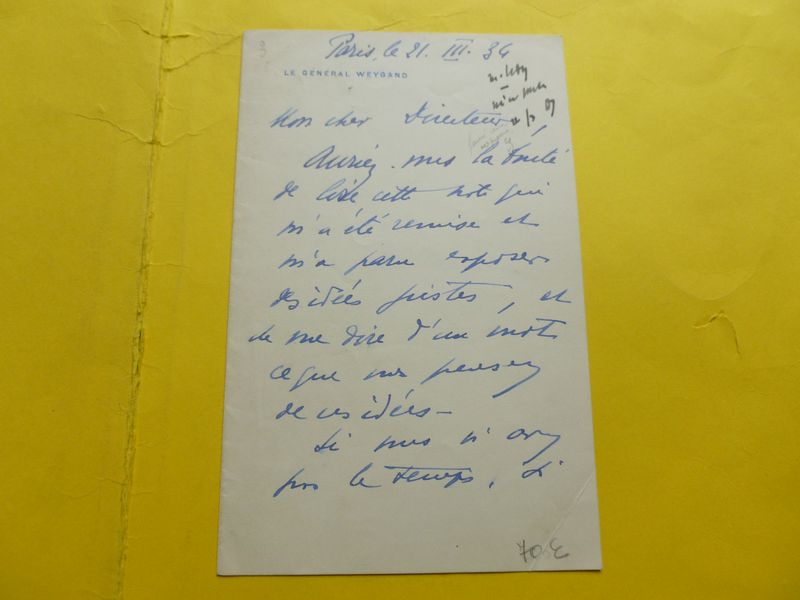 Paris, le 21. III. 36
LE GÉNÉRAL WEYGAND
Mon cher Directeur,
Auriez-vous la bonté
de lire cette note qui
m'a été remise et
m'a paru exposer
des idées justes, et
de me dire d'un mot
ce que vous pensez
de ces idées -
Si vous n'avez
pas le temps, si
70 €